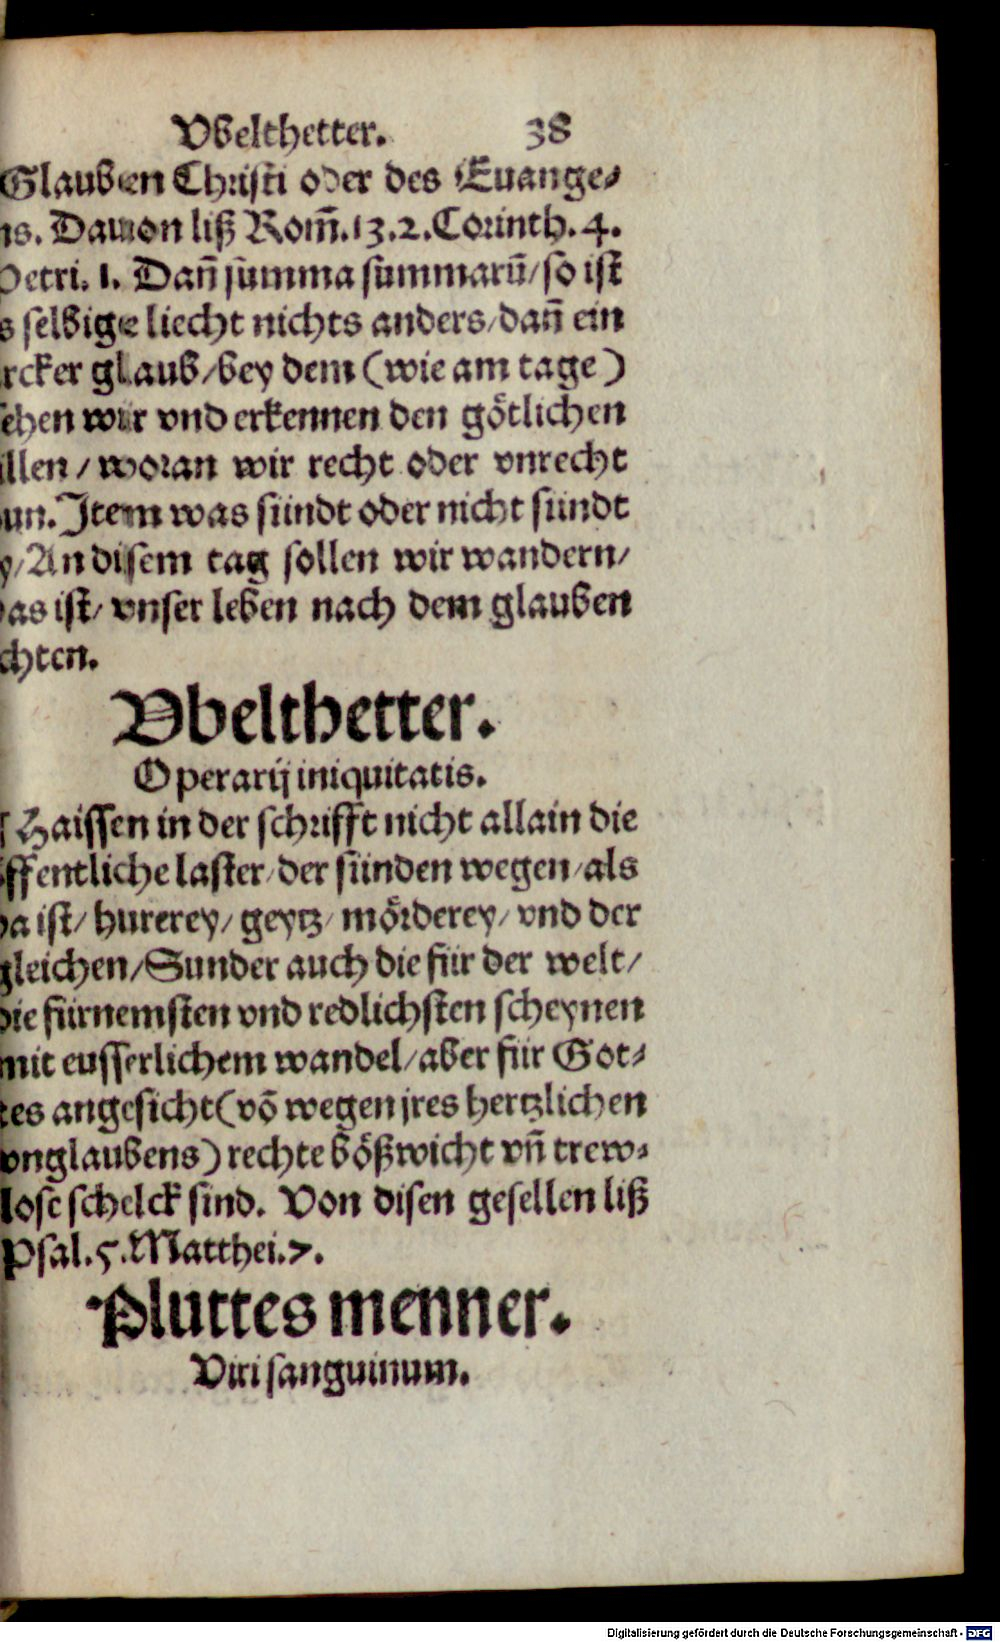 Vbelthetter. 38
Glauben Christi oder des Euange⸗
ns. Dauon liß Rom̃.13.2.Corinth.4.
Petri.1. Dañ summa summarũ/so ist
s selbige liecht nichts anders/dañ ein
rcker glaub/bey dem (wie am tage)
sehen wir vnd erkennen den götlichen
illen/woran wir recht oder vnrecht
un. Item was sündt oder nicht sündt
y/An disem tag sollen wir wandern/
das ist/vnser leben nach dem glauben
chten.
Vbelthetter.
Operarij iniquitatis.
Haissen in der schrifft nicht allain die
öffentliche laster/der sünden wegen/als
da ist/hurerey/geytz/mörderey/vnd der
gleichen/Sunder auch die für der welt/
die fürnemsten vnd redlichsten scheynen
mit eusserlichem wandel/aber für Got⸗
tes angesicht(võ wegen jres hertzlichen
vnglaubens) rechte bößwicht vñ trew⸗
lose schelck sind. Von disen gesellen liß
Psal.5.Matthei.7.
Pluttes menner.
Viri sanguinum.
Digitalisierung gefördert durch die Deutsche Forschungsgemeinschaft - DFG